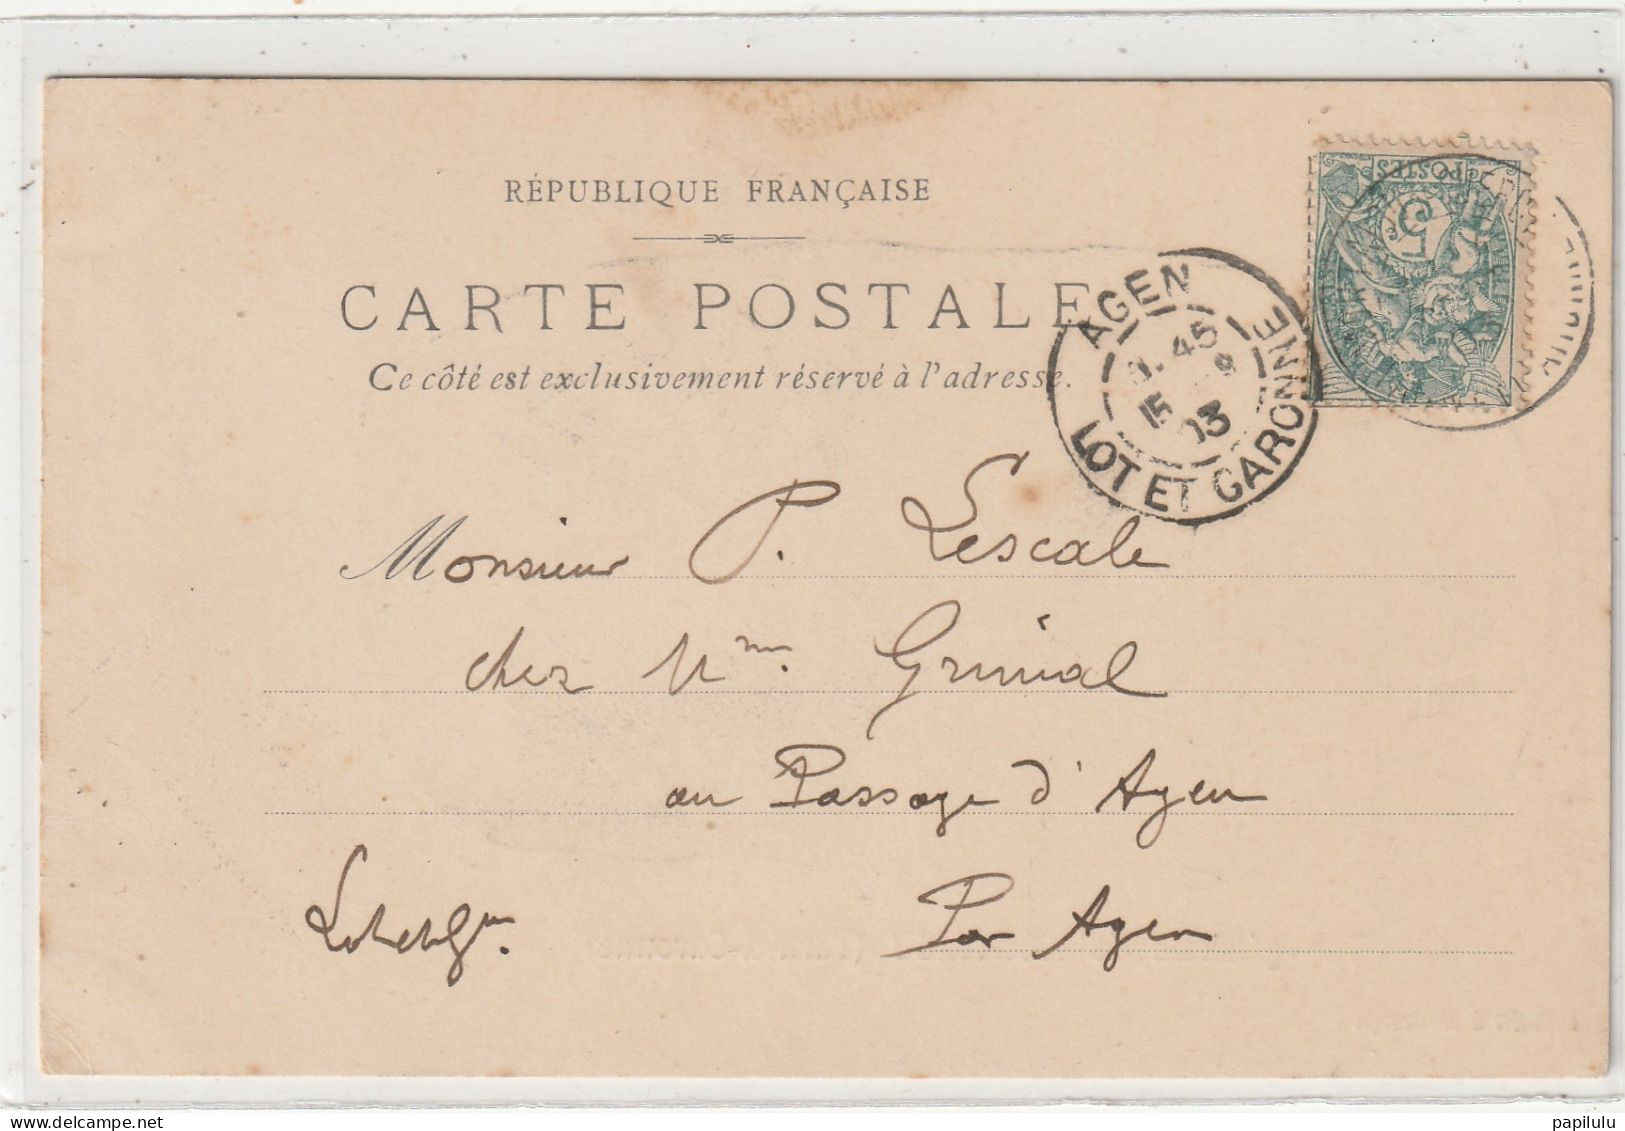 RÉPUBLIQUE FRANÇAISE
CARTE POSTALE
Ce côté est exclusivement réservé à l'adresse.
POSTES
5
AGEN
45
15
03
LOT ET GARONNE
Monsieur P. Lescale
chez Mme. Grimal
au Passage d'Agen
Par Agen
Lot et Gne.
papilulu